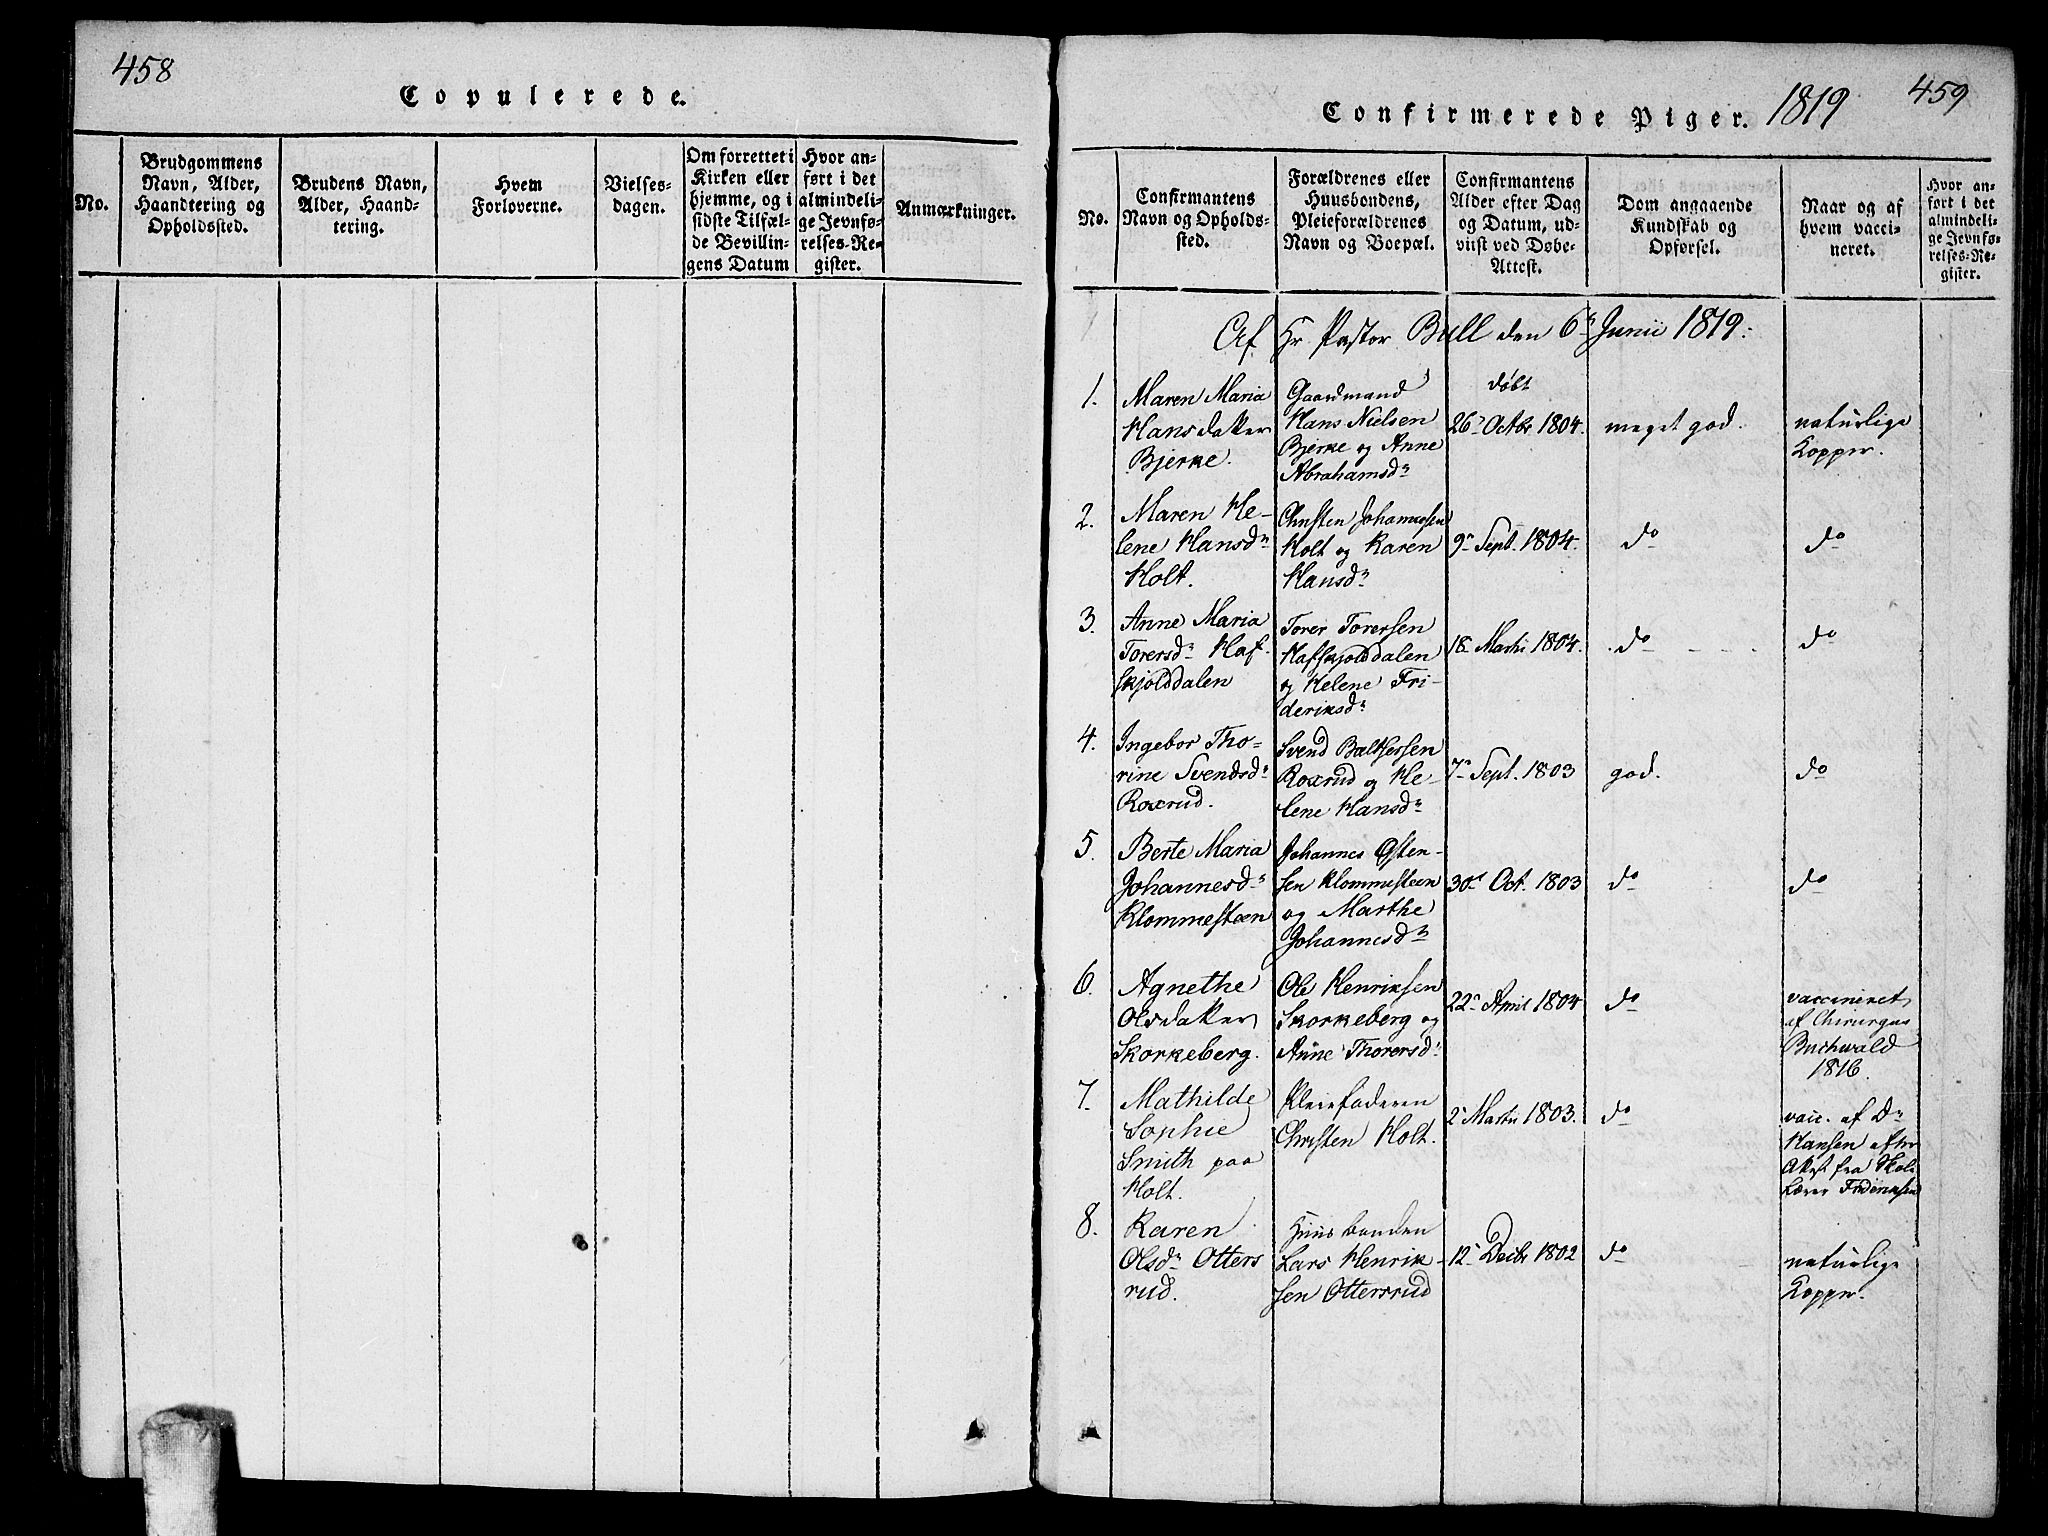 458
Copulerede.
No.
Brudgommens
Navn, Alder,
Haandtering og
Opholdssted.
Brudens Navn,
Alder, Haand-
tering.
Hvem
Forloverne.
Vielses-
dagen.
Om forrettet i
Kirken eller
hjemme, og i
sidste Tilfæl-
de Bevillin-
gens Datum
Hvor an-
ført i det
almindeli-
ge Jevnfø-
relses-Re-
gister.
Anmærkninger.
459
Confirmerede Piger. 1819
No.
Confirmantens
Navn og Opholds-
sted.
Forældrenes eller
Huusbondens,
Pleieforældrenes
Navn og Boepæl.
Confirmantens
Alder efter Dag
og Datum, ud-
viist ved Døbe-
Attest.
Dom angaaende
Kundskab og
Opførsel.
Naar og af
hvem vacci-
neret.
Hvor an-
ført i det
almindeli-
ge Jevnfø-
relses-Re-
gister.
Af Hr Pastor Bull den 6te Junii 1819:
1.
Maren Maria
Hansdatter
Bjerke.
Gaardmand
Hans Nielsen
Bjerke og Anne
Abrahamsdr
døbt
26 Octbr 1804.
meget god.
naturlige
Kopper.
2.
Maren He-
lene Hansdr
Holt.
Christen Johannesen
Holt og Karen
Hansdr
9 Sept. 1804.
do
do
3.
Anne Maria
Torersdr Haf-
skjolddalen
Torer Torersen
Hafskjolddalen
og Helene Fri-
deriksdr
18 Martii 1804.
do
do
4.
Ingebor Tho-
rine Svendsdr
Roxrud.
Svend Baltsersen
Roxrud og He-
lene Hansdr
7 Sept. 1803
god.
do
5.
Berte Maria
Johannesdr
Klommesteen
Johannes Østen-
sen Klommesteen
og Marthe
Johannesdr
30 Oct. 1803
do
do
6.
Agnethe
Olsdatter
Skorkeberg.
Ole Henriksen
Skorkeberg og
Anne Thorersdr
22 April 1804
do
vaccineret
af Chirurgus
Buchwald
1816.
7.
Mathilde
Sophie
Smith paa
Holt.
Pleiefaderen
Christen Holt.
2 Martii 1803.
do
vacc. af Dr
Hansen efter
Attest fra Skole
Lærer Frideriksen
8.
Karen
Olsdr Otters
rud.
Huusbonden
Lars Henrik-
sen Ottersrud
12 Decbr 1802
do
naturlige
Kopper.